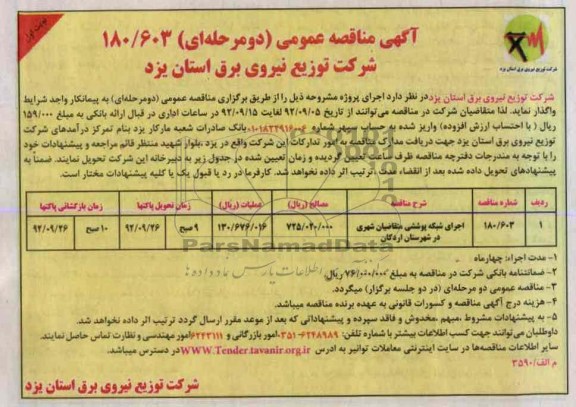 نوبت اول
آگهی مناقصه عمومی (دومرحله‌ای) ۱۸۰/۶۰۳
شرکت توزیع نیروی برق استان یزد
شرکت توزیع نیروی برق استان یزد
شرکت توزیع نیروی برق استان یزد در نظر دارد اجرای پروژه مشروحه ذیل را از طریق برگزاری مناقصه عمومی (دومرحله‌ای) به پیمانکار واجد شرایط
واگذار نماید. لذا متقاضیان شرکت در مناقصه می‌توانند از تاریخ ۹۲/۰۹/۰۵ لغایت ۹۲/۰۹/۱۵ در ساعات اداری در قبال ارائه بانکی به مبلغ ۱۵۹/۰۰۰
ریال ( با احتساب ارزش افزوده) واریز شده به حساب سپهر بانک صادرات شعبه مارکار یزد بنام تمرکز درآمدهای شرکت
توزیع نیروی برق استان یزد جهت دریافت مدارک مناقصه به امور تدارکات این شرکت واقع در یزد ،بلوار شهید منتظر قائم مراجعه و پیشنهادات خود
را با توجه به مندرجات دفترچه مناقصه ظرف مدت تعیین گردیده و زمان تعیین شده در جدول زیر به دبیرخانه این شرکت تحویل نمایند. ضمناً به
پیشنهادهای تحویل داده شده بعد از انقضاء مدت ،ترتیب اثر داده نخواهد شد. کارفرما در رد یا قبول یک یا کلیه پیشنهادات مختار است.
ردیف شماره مناقصه شرح مناقصه مصالح (ریال) عملیات (ریال) زمان تحویل پاکتها زمان بازگشائی پاکتها
۱ ۱۸۰/۶۰۳ اجرای شبکه پوششی متقاضیان شهری در شهرستان اردکان ۷۲۵/۰۲۰/۰۰۰ ۱۳۰/۶۷۶/۰۱۶ ۹ صبح ۹۲/۰۹/۲۶ ۱۰ صبح ۹۲/۰۹/۲۶
۱- مدت اجراء: چهارماه
۲- ضمانتنامه بانکی شرکت در مناقصه به مبلغ ۷۶/۰۰۰/۰۰۰ ریال.
۳- مناقصه عمومی دو مرحله‌ای (در دو جلسه برگزار) میگردد.
۴- هزینه درج آگهی مناقصه و کسورات قانونی به عهده برنده مناقصه میباشد.
۵- به پیشنهادات مشروط ،مبهم ،مخدوش و فاقد سپرده و پیشنهاداتی که بعد از موعد مقرر ارسال گردد ترتیب اثر داده نخواهد شد.
داوطلبان می‌توانند جهت کسب اطلاعات بیشتر با شماره تلفن: ۶۲۴۸۹۸۹-۰۳۵۱ امور بازرگانی و ۶۲۴۳۱۱۱ امور مهندسی و نظارت تماس حاصل نمایند.
سایر اطلاعات مناقصه‌ها در سایت اینترنتی معاملات توانیر به ادرس WWW.Tender.tavanir.org.ir در دسترس میباشد.
م الف/۳۵۹۰
شرکت توزیع نیروی برق استان یزد
ParsNamadData